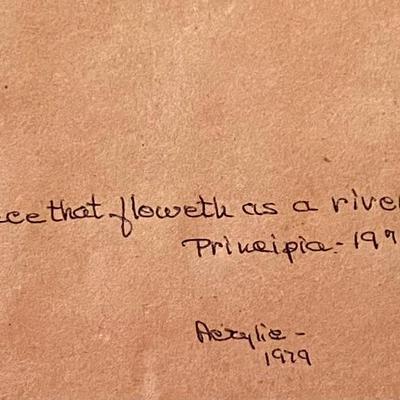 ce that floweth as a river
Principia - 197
Acrylic -
1979